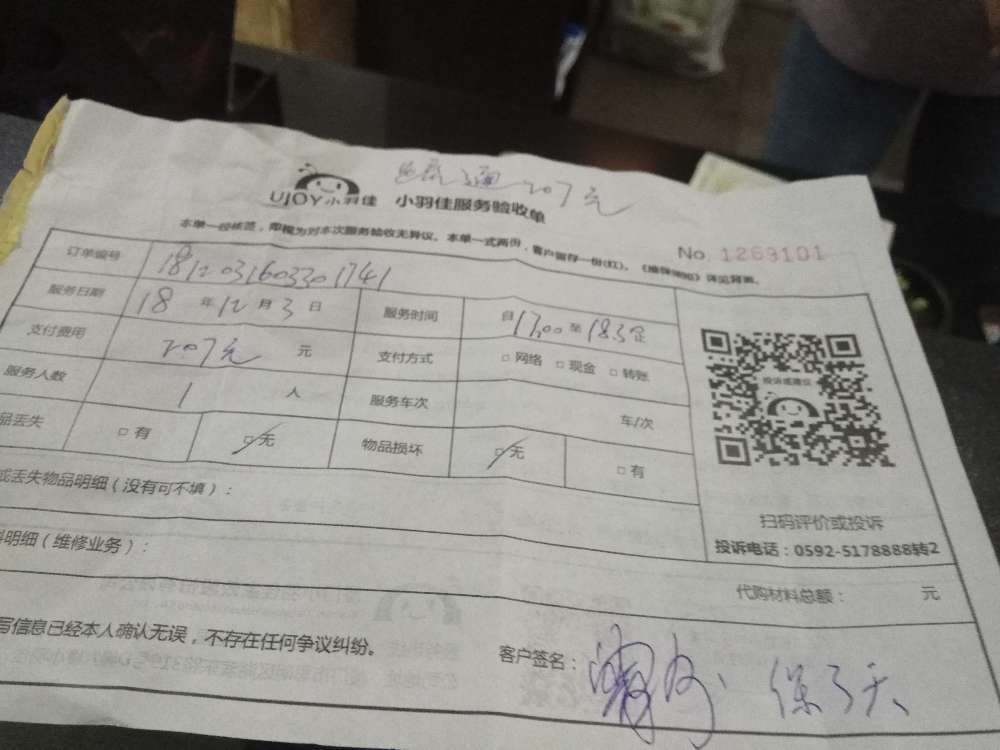 207元
UJOY小羽佳 小羽佳服务验收单
本单一经核签，即视为对本次服务验收无异议。本单一式两份，客户留存一份(红)。《维保须知》详见背面。
No 1269101
订单编号 1812031603301741
服务日期 18 年 12 月 3 日 服务时间 自 17:00 至
支付费用 207元 元 支付方式 □ 网络 □ 现金 □ 转账
服务人数 1 人 服务车次 车/次
品丢失 □ 有 □ 无 物品损坏 □ 无 □ 有
投诉或建议
扫码评价或投诉
投诉电话：0592-5178888转2
或丢失物品明细（没有可不填）：
料明细（维修业务）：
代购材料总额： 元
写信息已经本人确认无误，不存在任何争议纠纷。
客户签名：